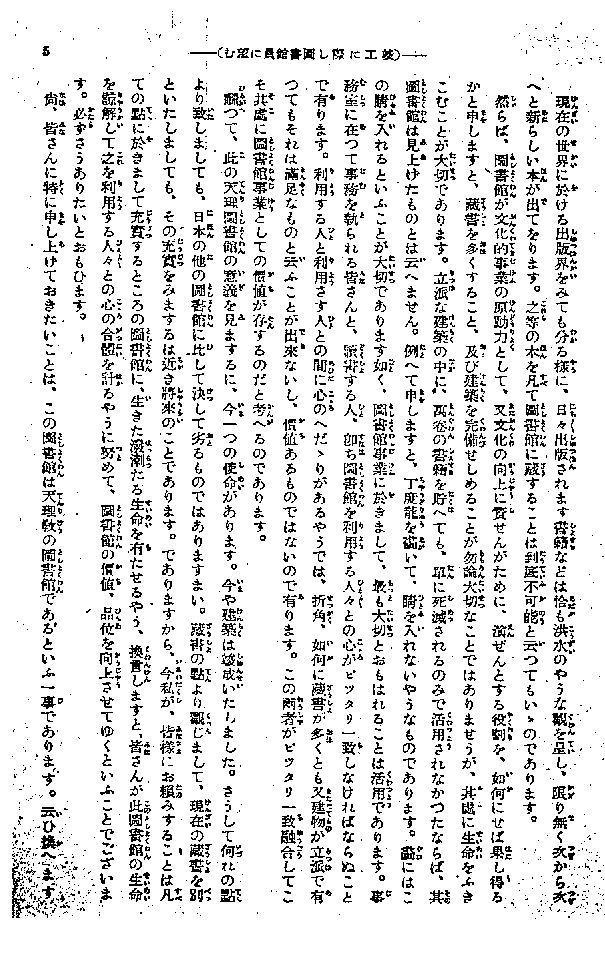 5
――(竣工に際し圖書館員に望む)――
現在の世界に於ける出版界をみても分る樣に、日々出版されます書籍などは恰も洪水のやうな觀を呈し、限り無く次から次
へと新らしい本が出てをります。之等の本を凡て圖書館に藏することは到底不可能と云つてもいゝのであります。
然らば、圖書館が文化的事業の原動力として、又文化の向上に資せんがために、演ぜんとする役割を、如何にせば果し得る
かと申しますと、藏書を多くすること、及び建築を完備せしめることが勿論大切なことではありませうが、其處に生命をふき
こむことが大切であります。立派な建築の中に、萬卷の書籍を貯へても、單に死藏されるのみで活用されなかつたならば、其
圖書館は見上げたものとは云へません。例へて申しますと、丁度龍を畵いて、睛を入れないやうなものであります。畵にはこ
の睛を入れるといふことが大切であります如く、圖書館事業に於きまして、最も大切とおもはれることは活用であります。事
務室に在つて事務を執られる皆さんと、讀書する人、卽ち圖書館を利用する人々との心がピツタリ一致しなければならぬこと
で有ります。利用する人と利用さす人との間に心のへだゝりがあるやうでは、折角、如何に藏書が多くとも又建物が立派で有
つてもそれは滿足なものと云ふことが出來ないし、價値あるものではないので有ります。この兩者がピツタリ一致融合してこ
そ其處に圖書館事業としての價値が存するのだと考へるのであります。
飜つて、此の天理圖書館の意義を見まするに、今一つの使命があります。今や建築は竣成いたしました。さうして何れの點
より致しましても、日本の他の圖書館に比して決して劣るものではありますまい。藏書の點より觀じまして、現在の藏書を別
といたしましても、その充實をみまするは近き將來のことであります。でありますから、今私が、皆樣にお頼みすることは凡
ての點に於きまして充實するところの圖書館に、生きた潑溂たる生命を有たせるやう、換言しますと、皆さんが此圖書館の生命
を諒解して之を利用する人々との心の合體を計るやうに努めて、圖書館の價値、品位を向上させてゆくといふことでございま
す。必ずさうありたいとおもひます。
尙、皆さんに特に申し上げておきたいことは、この圖書館は天理敎の圖書館であるといふ一事であります。云ひ換へます